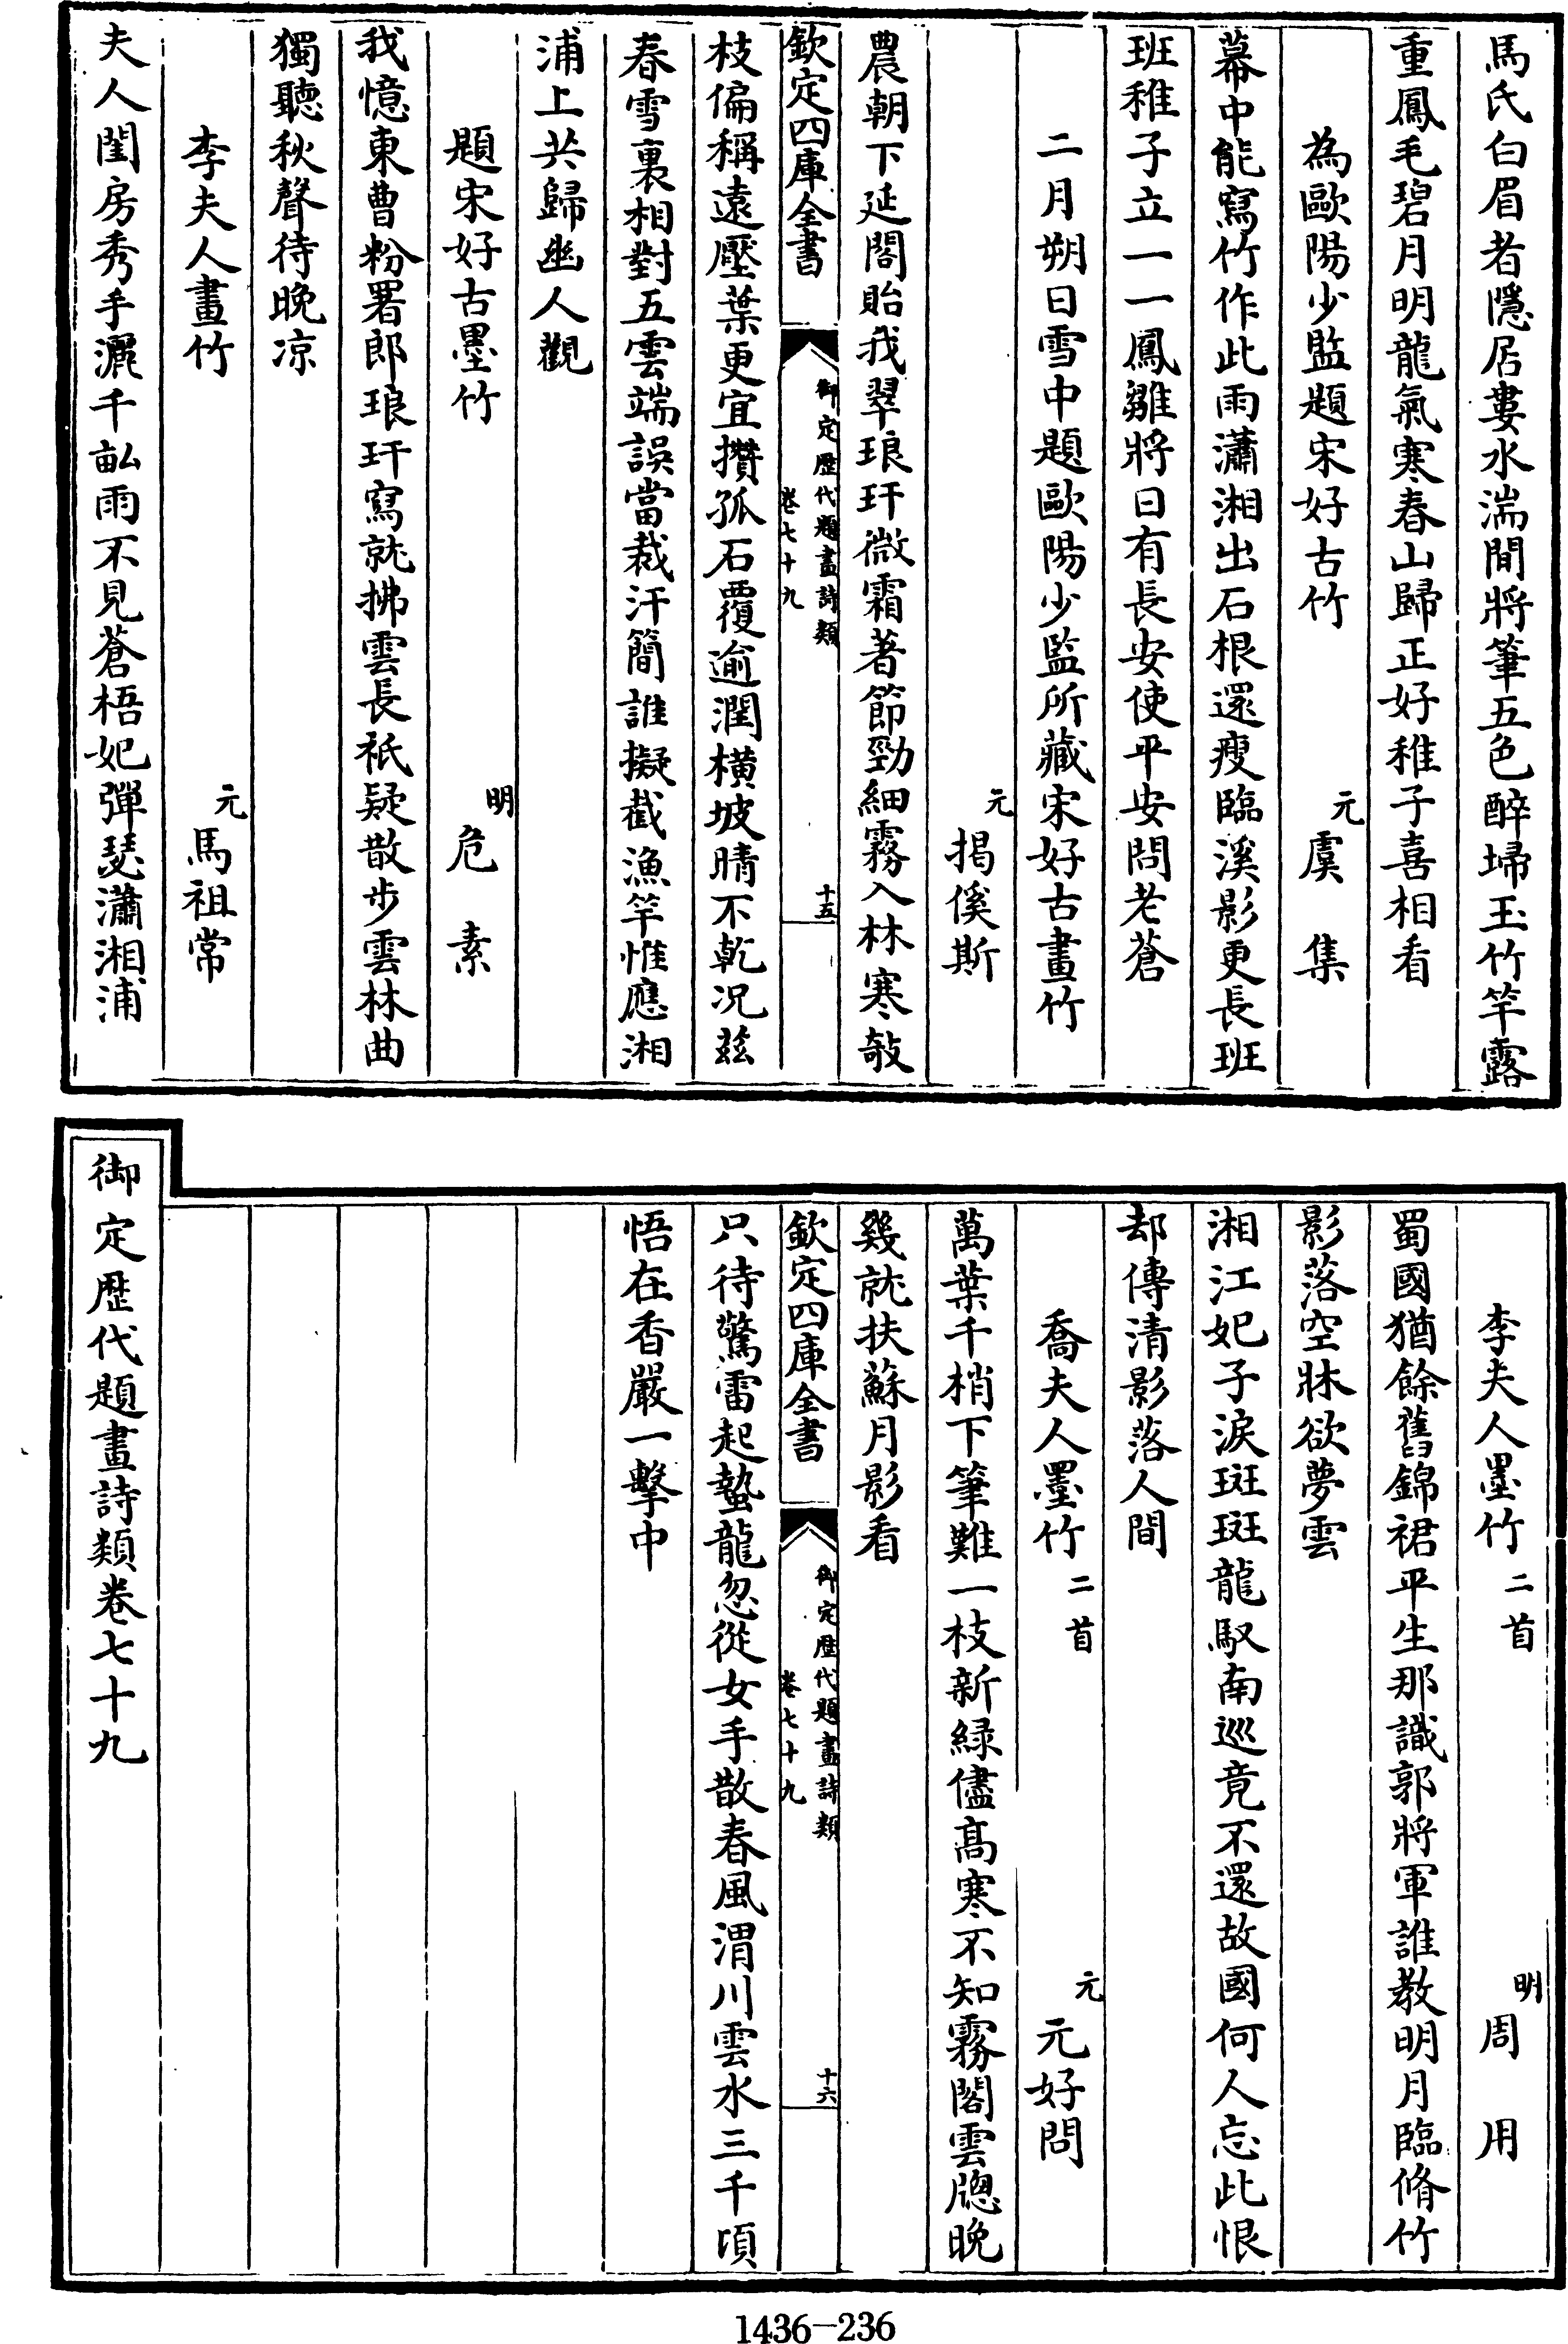 馬氏白眉者隱居婁水湍間將筆五色醉埽玉竹竿露
重鳳毛碧月明龍氣寒春山歸正好稚子喜相看
為歐陽少監題宋好古竹　元　虞　集
幕中能寫竹作此雨瀟湘出石根還瘦臨溪影更長班
班稚子立一一鳳雛將日有長安使平安問老蒼
二月朔日雪中題歐陽少監所藏宋好古畫竹
元　揭傒斯
農朝下延閣貽我翠琅玕微霜著節勁細霧入林寒敧
欽定四庫全書　御定歷代題畫詩類　卷七十九　十五
枝偏稱遠壓葉更宜攢孤石覆逾潤橫坡晴不乾況茲
春雪裏相對五雲端誤當裁汗簡誰擬截漁竿惟應湘
浦上共歸幽人觀
題宋好古墨竹　明　危　素
我憶東曹粉署郎琅玕寫就拂雲長祇疑散步雲林曲
獨聽秋聲待晚涼
李夫人畫竹　元　馬祖常
夫人閨房秀手灑千畝雨不見蒼梧妃彈瑟瀟湘浦
李夫人墨竹二首　明　周　用
蜀國猶餘舊錦裙平生那識郭將軍誰教明月臨脩竹
影落空牀欲夢雲
湘江妃子淚斑斑龍馭南巡竟不還故國何人忘此恨
却傳清影落人間
喬夫人墨竹二首　元　元好問
萬葉千梢下筆難一枝新緑儘髙寒不知霧閣雲牕晚
幾就扶蘇月影看
欽定四庫全書　御定歷代題畫詩類　卷七十九　十六
只待驚雷起蟄龍忽從女手散春風渭川雲水三千頃
悟在香嚴一擊中
御定歷代題畫詩類卷七十九
1436-236